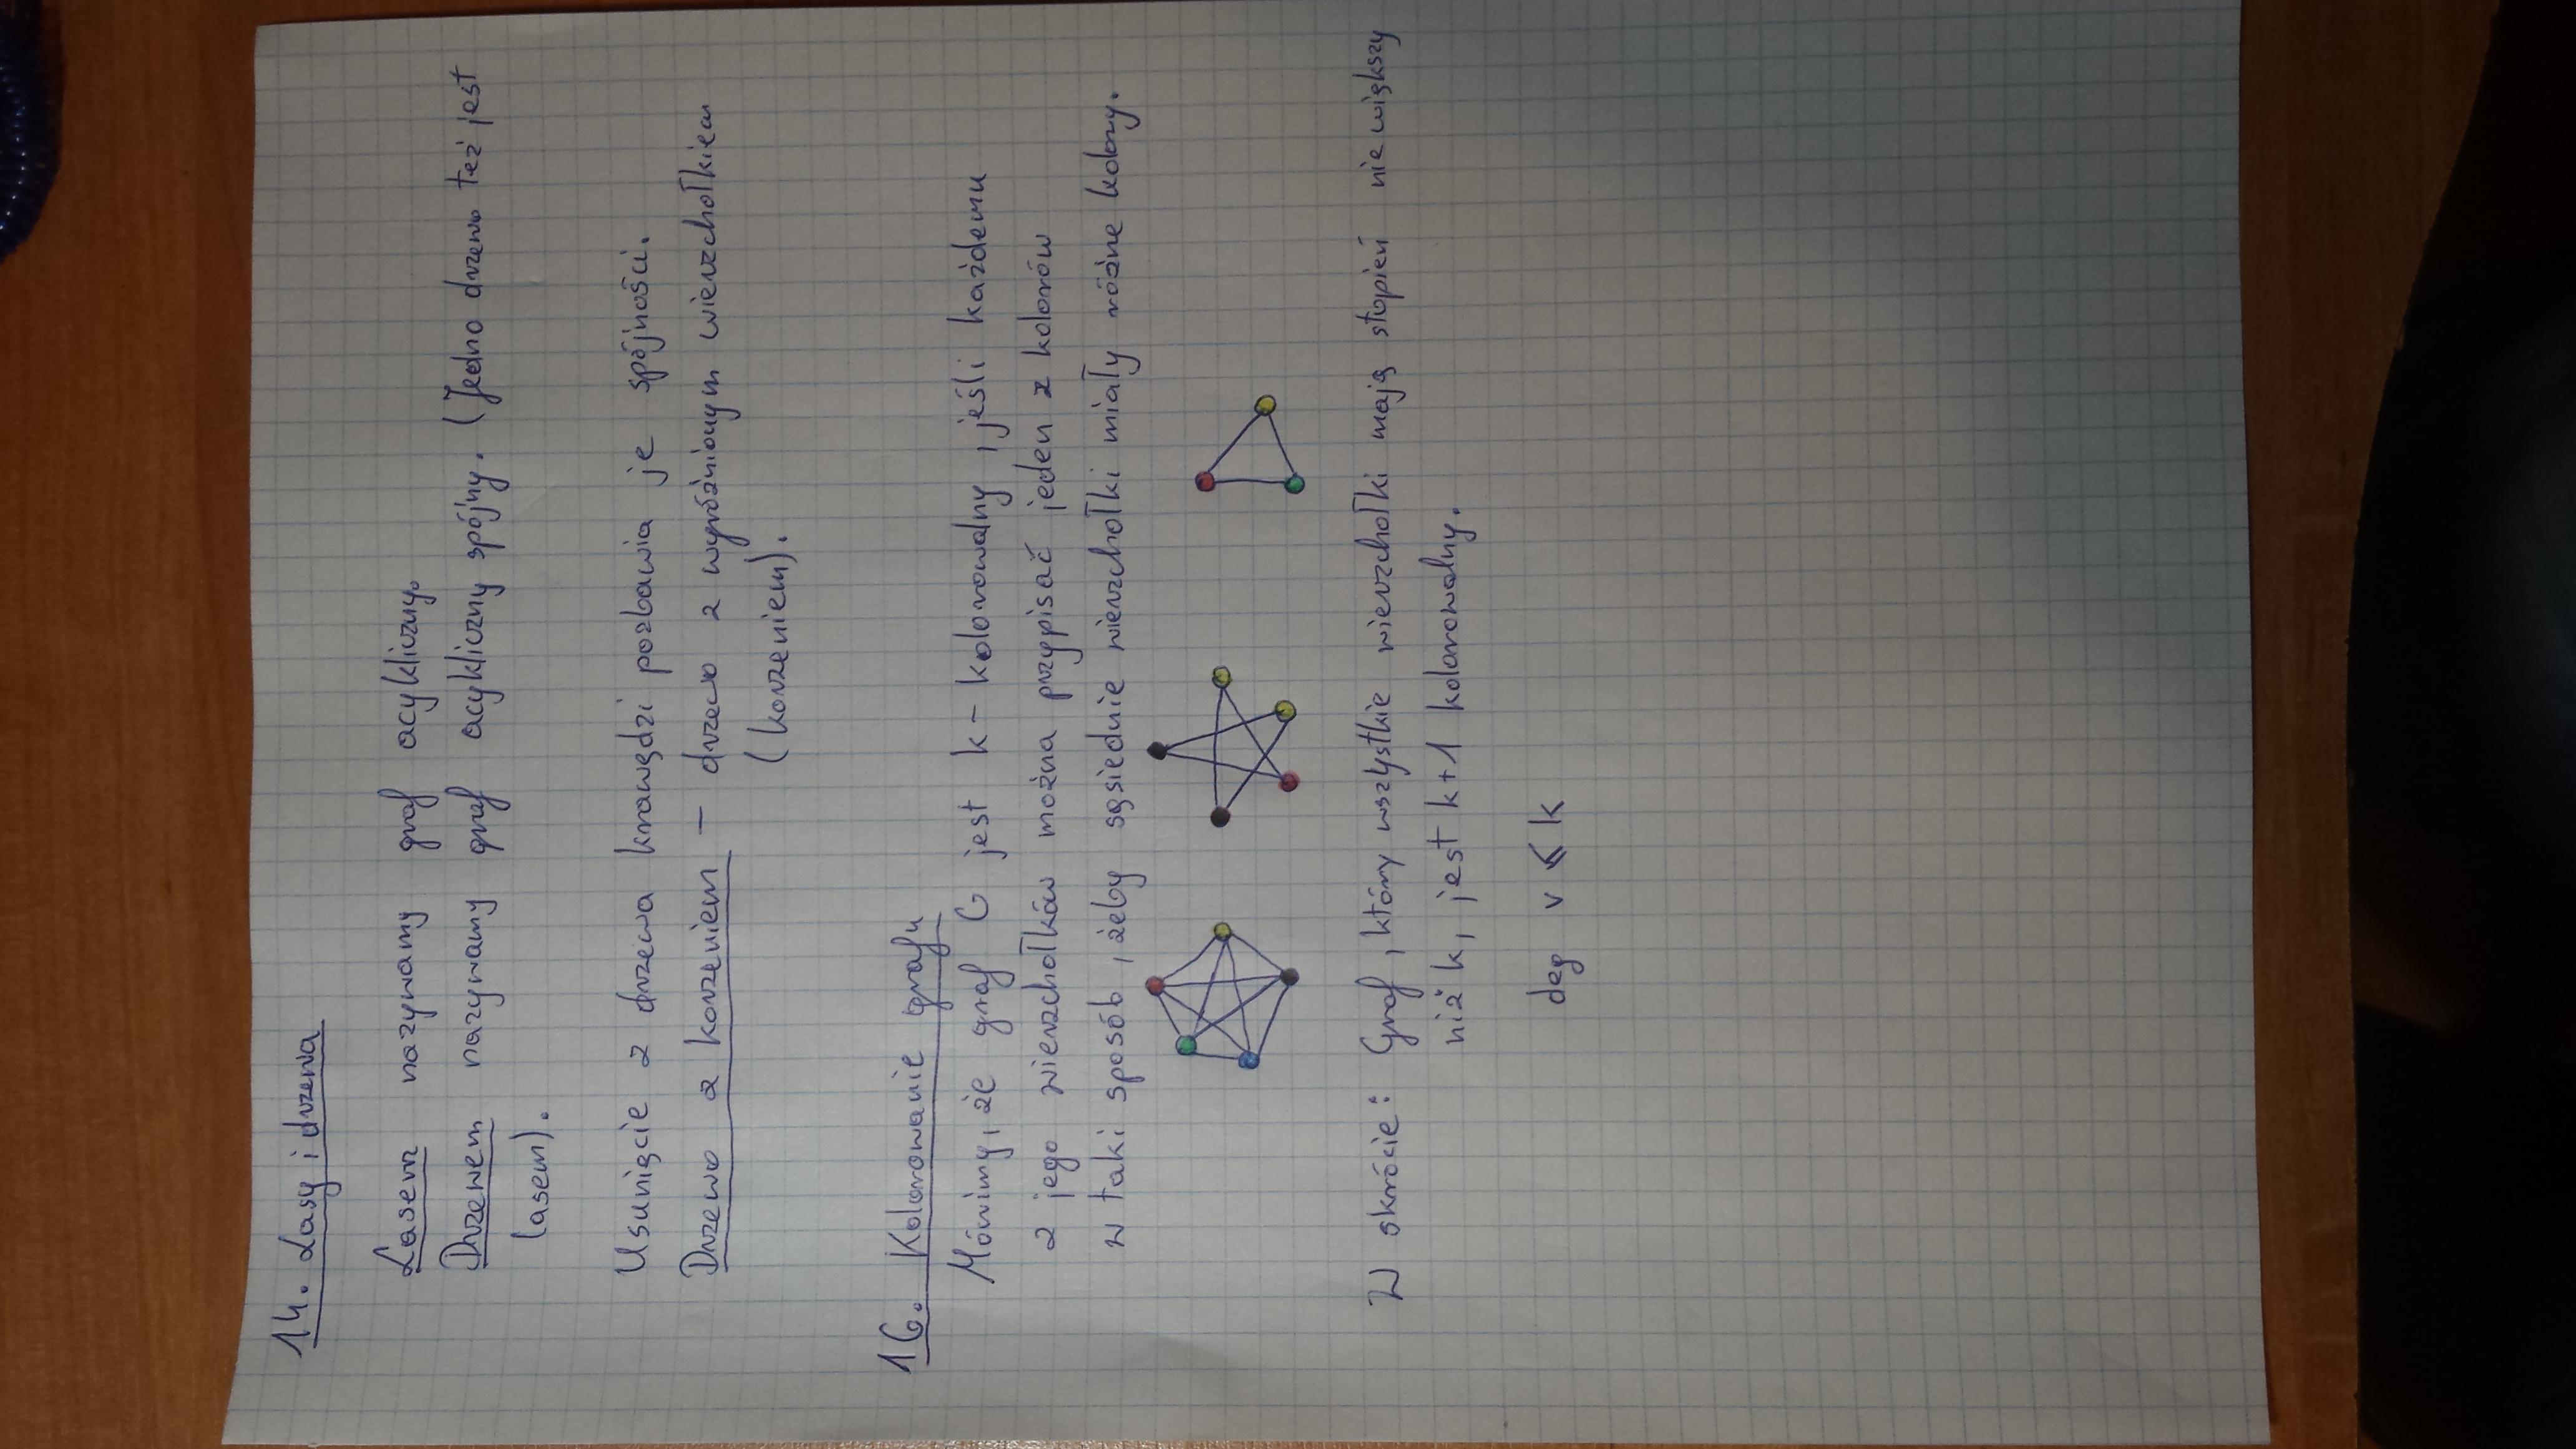 14. Lasy i drzewa
Lasem nazywamy graf acykliczny.
Drzewem nazywamy graf acykliczny spójny. (Jedno drzewo też jest
lasem).
Usunięcie z drzewa krawędzi pozbawia je spójności.
Drzewo z korzeniem - drzewo z wyróżnionym wierzchołkiem
(korzeniem).
16. Kolorowanie grafu
Mówimy, że graf G jest k-kolorowalny, jeśli każdemu
z jego wierzchołków można przypisać jeden z kolorów
w taki sposób, żeby sąsiednie wierzchołki miały różne kolory.
W skrócie: Graf, który wszystkie wierzchołki mają stopień nie większy
niż k, jest k+1 kolorowalny.
deg v ≤ k